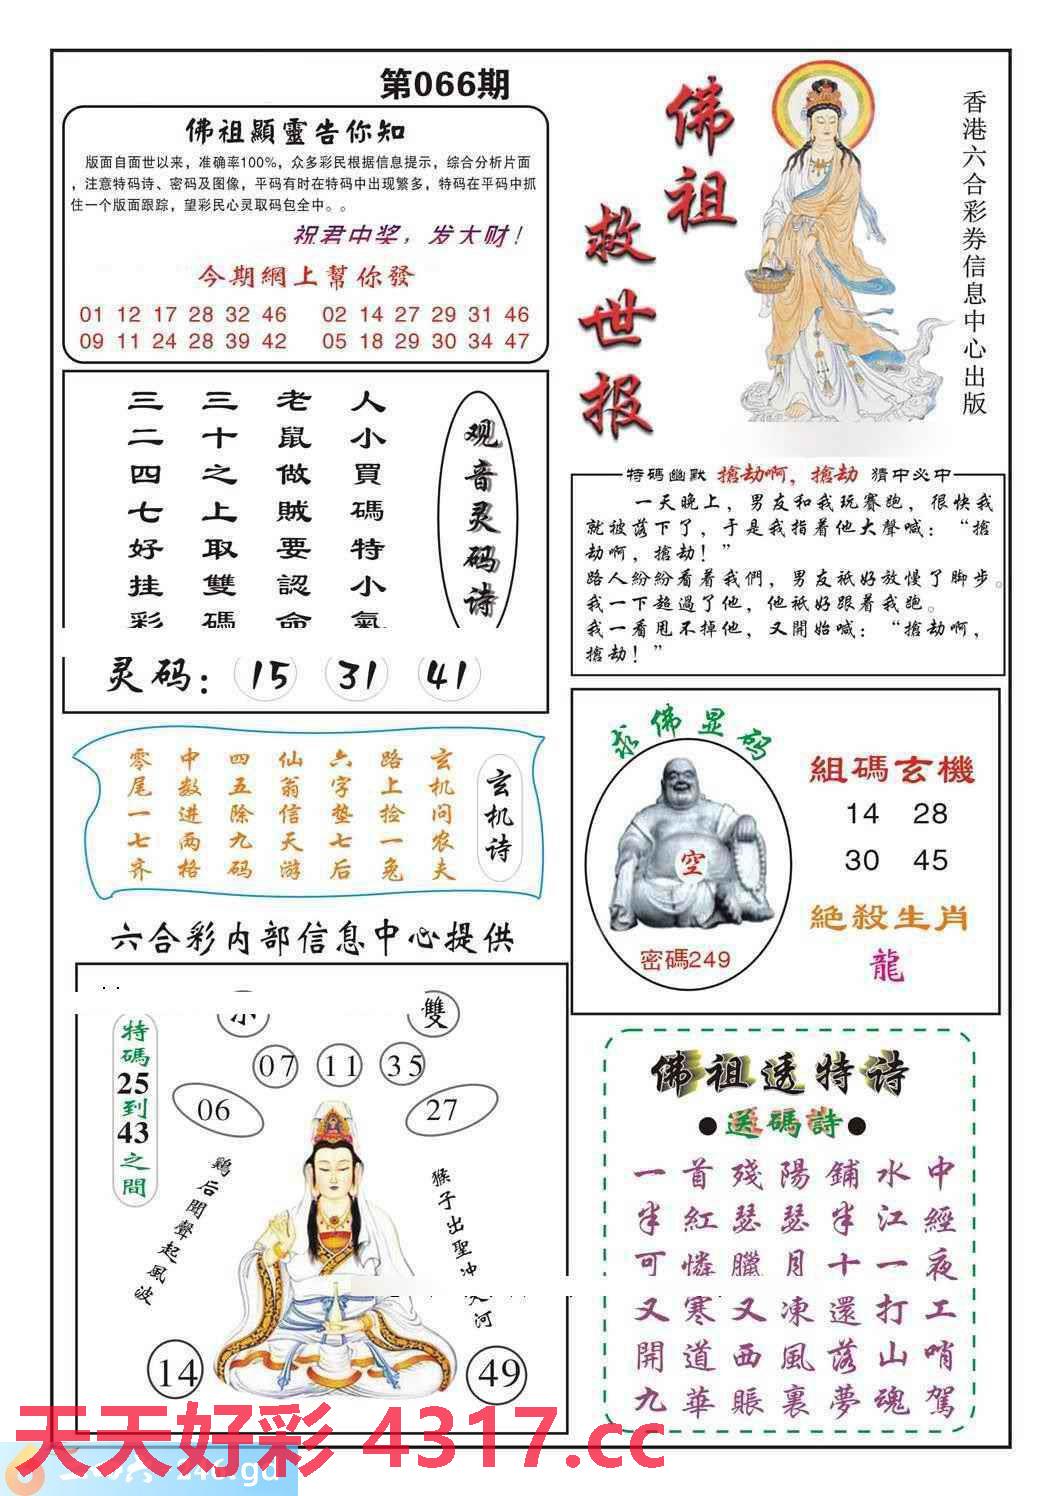 第066期
佛祖顯靈告你知
版面自面世以来，准确率100%，众多彩民根据信息提示，综合分析片面
，注意特码诗、密码及图像，平码有时在特码中出现繁多，特码在平码中抓
住一个版面跟踪，望彩民心灵取码包全中。。
祝君中奖，发大财！
今期網上幫你發
01 12 17 28 32 46 02 14 27 29 31 46
09 11 24 28 39 42 05 18 29 30 34 47
佛祖
救世报
香港六合彩券信息中心出版
观音灵码诗
人小買碼特小氣
老鼠做賊要認命
三十之上取雙碼
三二四七好挂彩
灵码：15 31 41
特码幽默 搶劫啊，搶劫 猜中必中
一天晚上，男友和我玩賽跑，很快我
就被落下了，于是我指着他大聲喊：“搶
劫啊，搶劫！”
路人紛紛看着我們，男友衹好放慢了脚步。
我一下超過了他，他衹好跟着我跑。
我一看甩不掉他，又開始喊：“搶劫啊，
搶劫！”
玄机诗
玄机问农夫
路上捡一兔
六字垫七后
仙翁信天游
四五除九码
中数进两格
零尾一七齐
求佛显码
空
密碼249
組碼玄機
14 28
30 45
絕殺生肖
龍
六合彩内部信息中心提供
特碼25到43之間
雙
07 11 35
06 27
鷄后聞聲起風波
猴子出聖冲天河
14 49
佛祖透特诗
●送碼詩●
一首殘陽鋪水中
半紅瑟瑟半江經
可憐臘月十一夜
又寒又凍還打工
開道西風落山哨
九華賬裏夢魂駕
天天好彩 4317.cc
246.gd